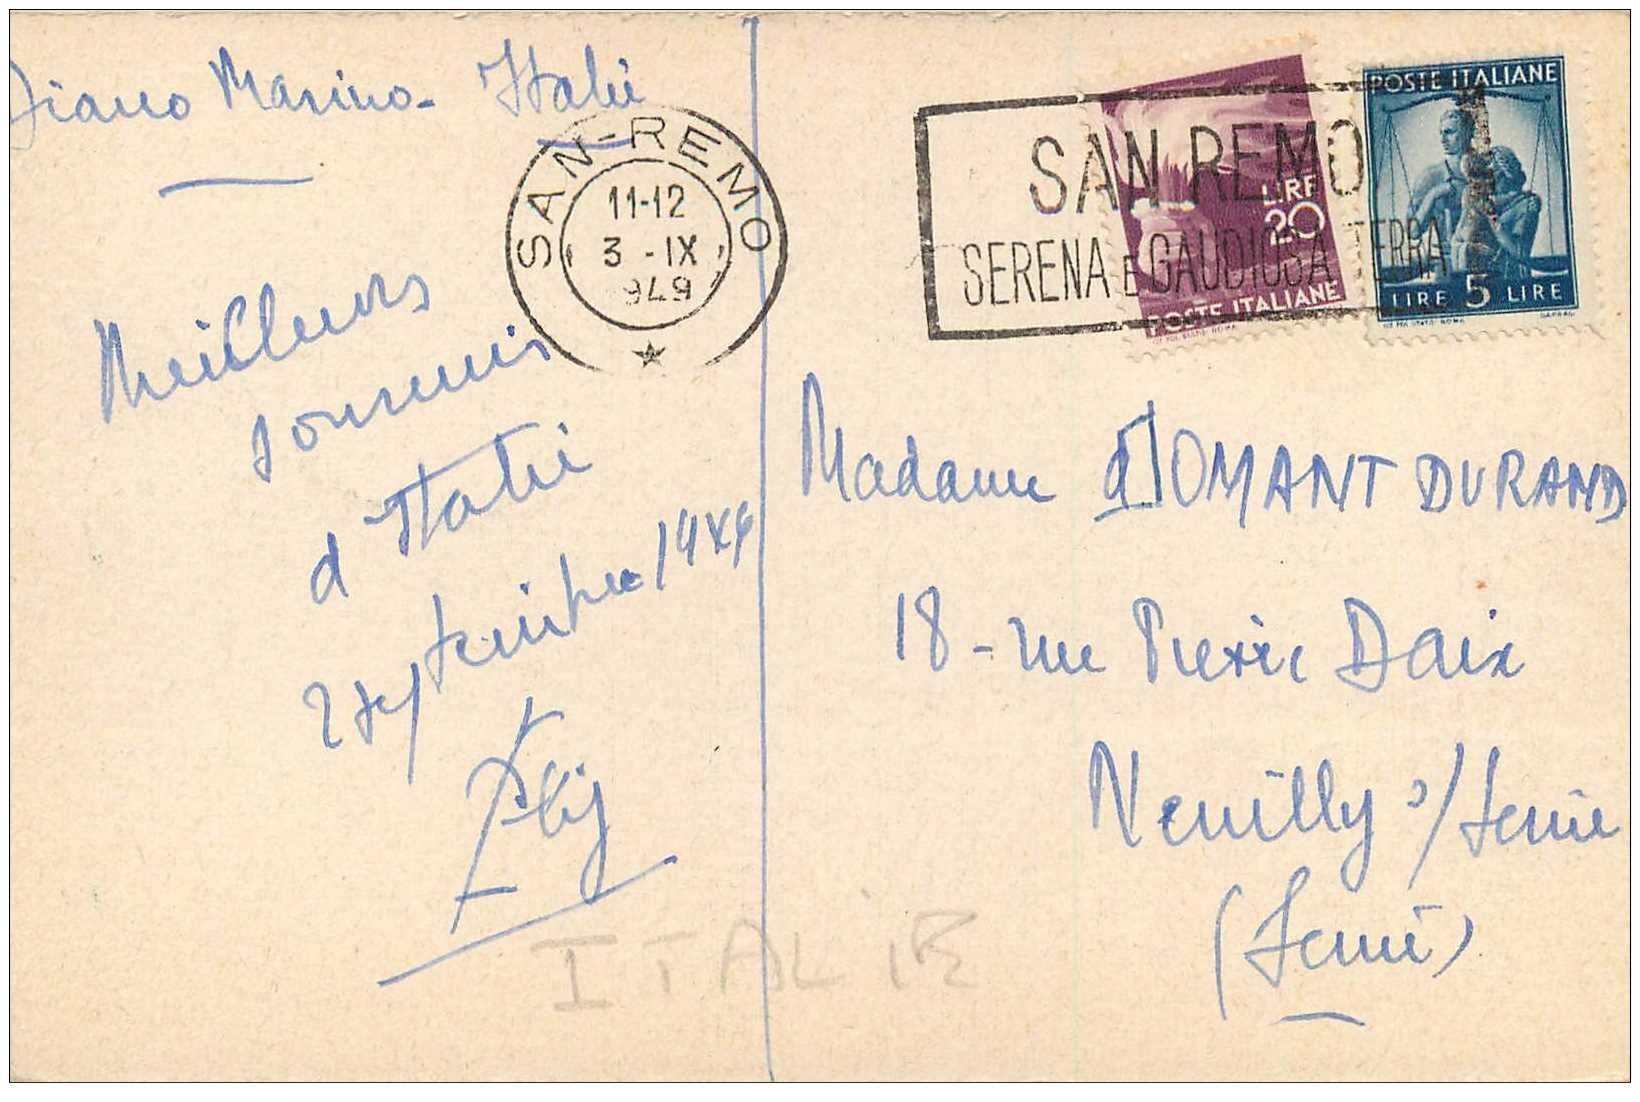 Diano Marino - Italie
SAN-REMO
11-12
3 - IX
949
SAN REMO
SERENA E GAUDIOSA TERRA
LIRE
20
POSTE ITALIANE
POSTE ITALIANE
LIRE 5 LIRE
Meilleurs
souvenirs
d'Italie
2 septembre 1949
Madame DOMANT DURAND
18 - rue Pierre Daix
Neuilly s/ Seine
(Seine)
ITALIE